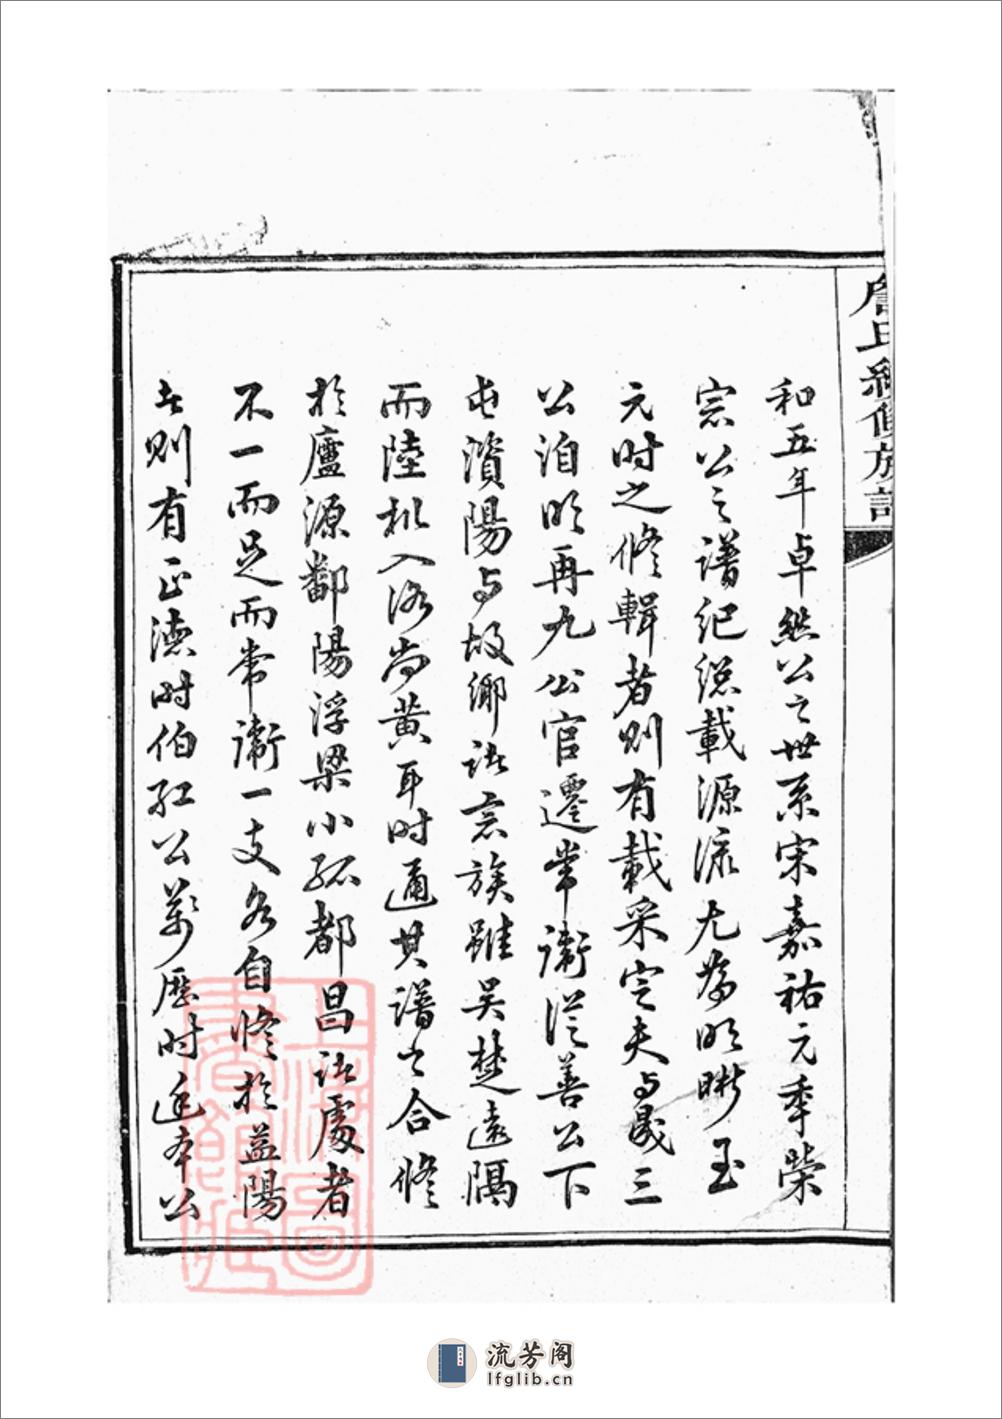 和五年卓然公之世系宋嘉祐元季榮
宗公之譜紀總載源流尤為明晰至
元時之修輯者則有載采定夫與晟三
公洎明再九公官遷常衛從善公下
屯資陽與故鄉諸宗族雖吳楚遠隔
而陸機入洛尚黃耳時通其譜之合修
於廬源鄱陽浮梁小孤都昌諸處者
不一而足而常衛一支各自修於益陽
者則有正德時伯紅公萬曆時廷本公
詹氏續修族譜
上海圖書館藏
流芳阁
lfglib.cn